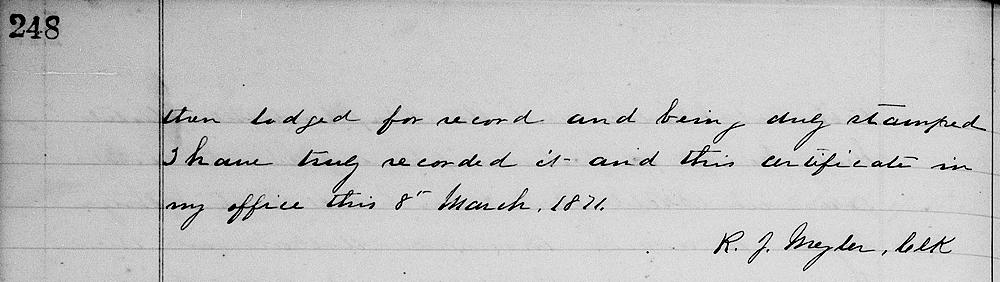 248
then lodged for record and being duly stamped
I have truly recorded it and this certificate in
my office this 8" March, 1871.
R. J. Meyler, Clk